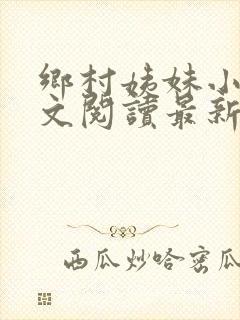 鄉村姊妹小
文閱讀最新
西瓜炒哈密瓜